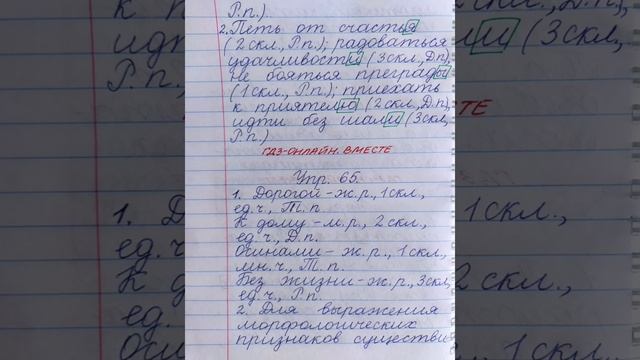 Р.п.)..
2. Петь от счастья
(2 скл., Р.п.); радоваться
удачливости (3 скл., Д.п.),
не бояться преграды
(1 скл., Р.п.); приехать
к приятелю (2 скл., Д.п.),
идти без шали (3 скл.,
Р.п.)
ГДЗ-ОНЛАЙН. ВМЕСТЕ
Упр. 65.
1. Дорогой - ж.р., 1 скл.,
ед.ч., Т.п.
К дому - м.р., 2 скл.,
ед.ч., Д.п.
Осинами - ж.р., 1 скл.,
мн.ч., Т.п.
Без жизни - ж.р., 3 скл,
ед.ч., Р.п.
2. Для выражения
морфологических
признаков существи